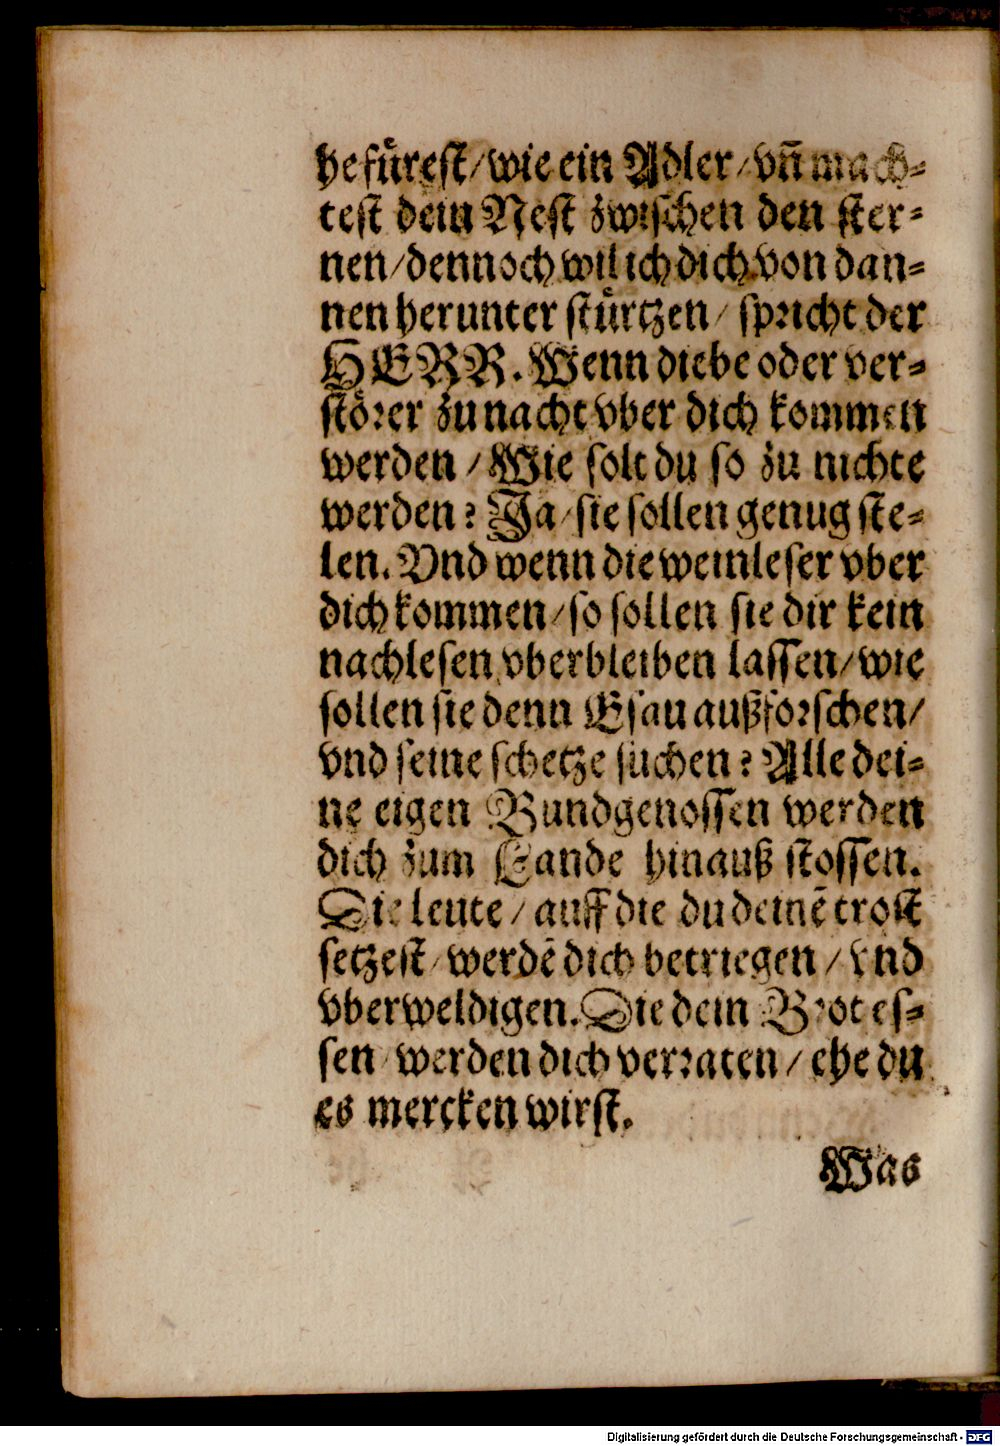 he fürest/ wie ein Adler/ vn̄ mach-
test dein Nest zwischen den ster-
nen/ dennoch wil ich dich von dan-
nen herunter stürtzen/ spricht der
HERR. Wenn diebe oder ver-
störer zu nacht vber dich kommen
werden/ Wie solt du so zu nichte
werden? Ja/ sie sollen genug ste-
len. Vnd wenn die weinleser vber
dich kommen/ so sollen sie dir kein
nachlesen vberbleiben lassen/ wie
sollen sie denn Esau außforschen/
vnd seine schetze suchen? Alle dei-
ne eigen Bundgenossen werden
dich zum Lande hinauß stossen.
Die leute/ auff die du deinē trost
setzest/ werdē dich betriegen/ vnd
vberweldigen. Die dein Brot es-
sen/ werden dich verraten/ ehe du
es mercken wirst.
Was
Digitalisierung gefördert durch die Deutsche Forschungsgemeinschaft - DFG